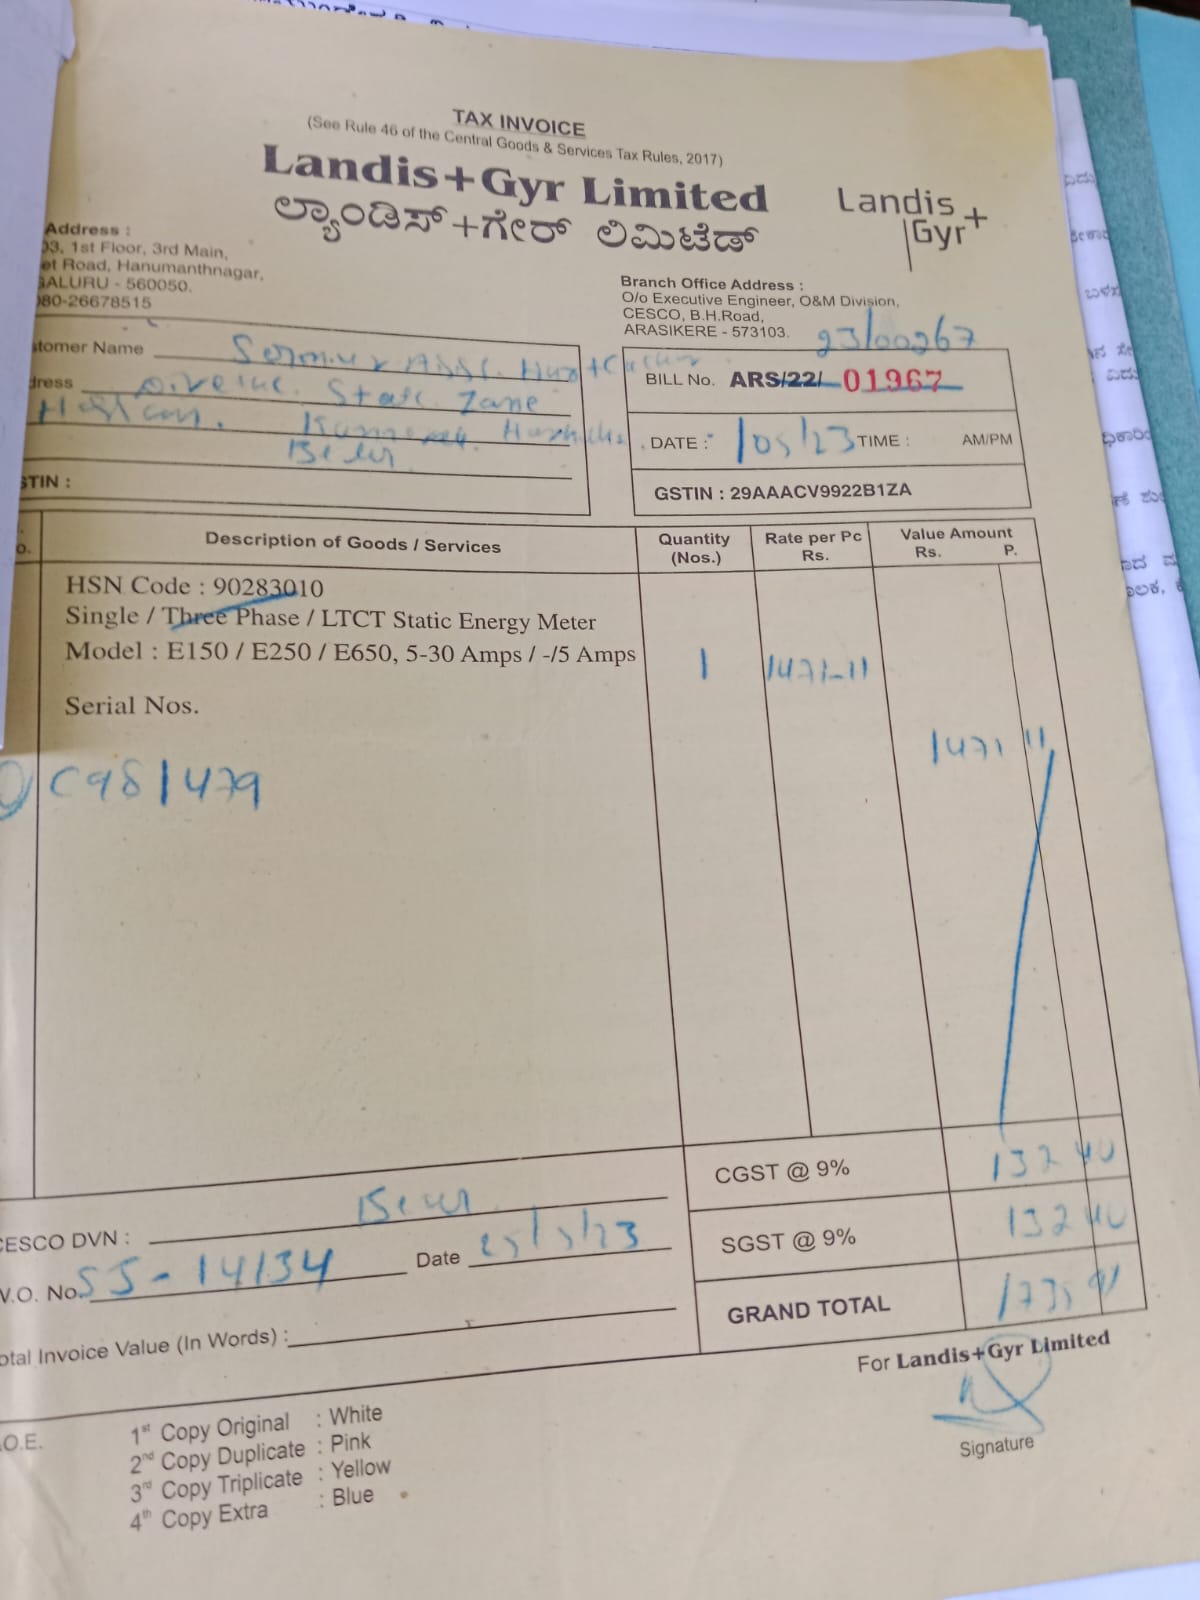 TAX INVOICE
(See Rule 46 of the Central Goods & Services Tax Rules, 2017)
Landis+Gyr Limited
ಲ್ಯಾಂಡಿಸ್+ಗೇರ್ ಲಿಮಿಟೆಡ್
Landis+
Gyr
Address :
03, 1st Floor, 3rd Main,
et Road, Hanumanthnagar,
GALURU - 560050.
080-26678515
Branch Office Address :
O/o Executive Engineer, O&M Division,
CESCO, B.H.Road,
ARASIKERE - 573103.
23/00267
stomer Name
BILL No. ARS/22/ 01967
dress State Zone
DATE : /05/23 TIME : AM/PM
STIN :
GSTIN : 29AAACV9922B1ZA
o. Description of Goods / Services Quantity (Nos.) Rate per Pc Rs. Value Amount Rs. P.
HSN Code : 90283010
Single / Three Phase / LTCT Static Energy Meter
Model : E150 / E250 / E650, 5-30 Amps / -/5 Amps 1 1471-11
Serial Nos.
1471 11
C981479
CGST @ 9% 132 40
CESCO DVN :
SGST @ 9% 132 40
W.O. No. SJ-14134 Date 25/5/23
GRAND TOTAL 1735 91
otal Invoice Value (In Words) :
For Landis+Gyr Limited
.O.E.
1st Copy Original : White
2nd Copy Duplicate : Pink
3rd Copy Triplicate : Yellow
4th Copy Extra : Blue
Signature